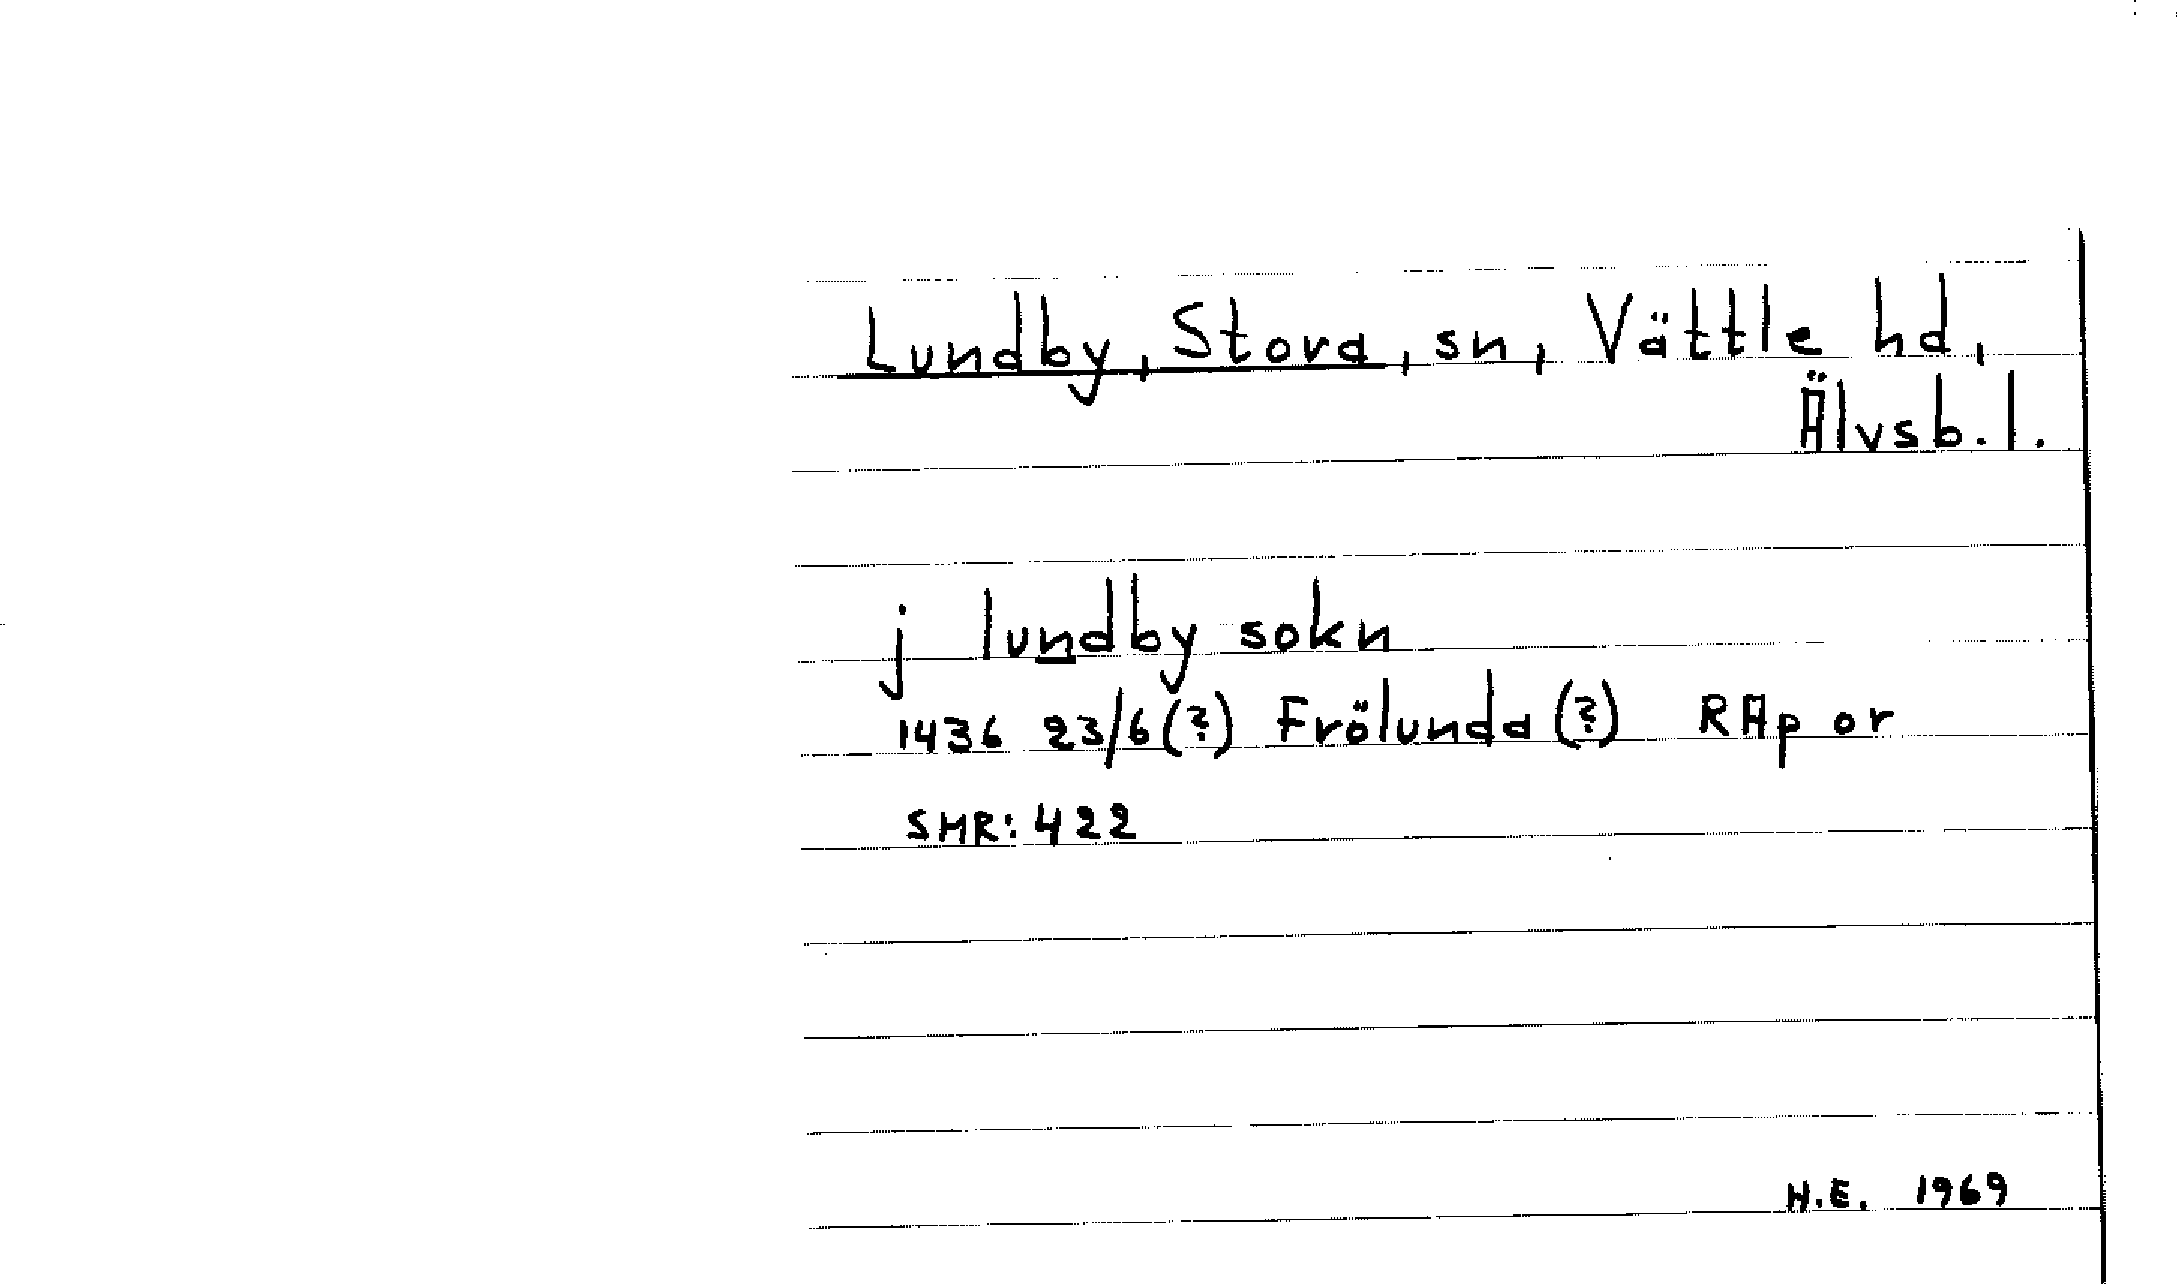 Lundby, Stora, sn, Vättle hd,
Älvsb. l.
j lundby sokn
1436 23/6(?) Frölunda(?) RAp or
SMR: 422
H.E. 1969